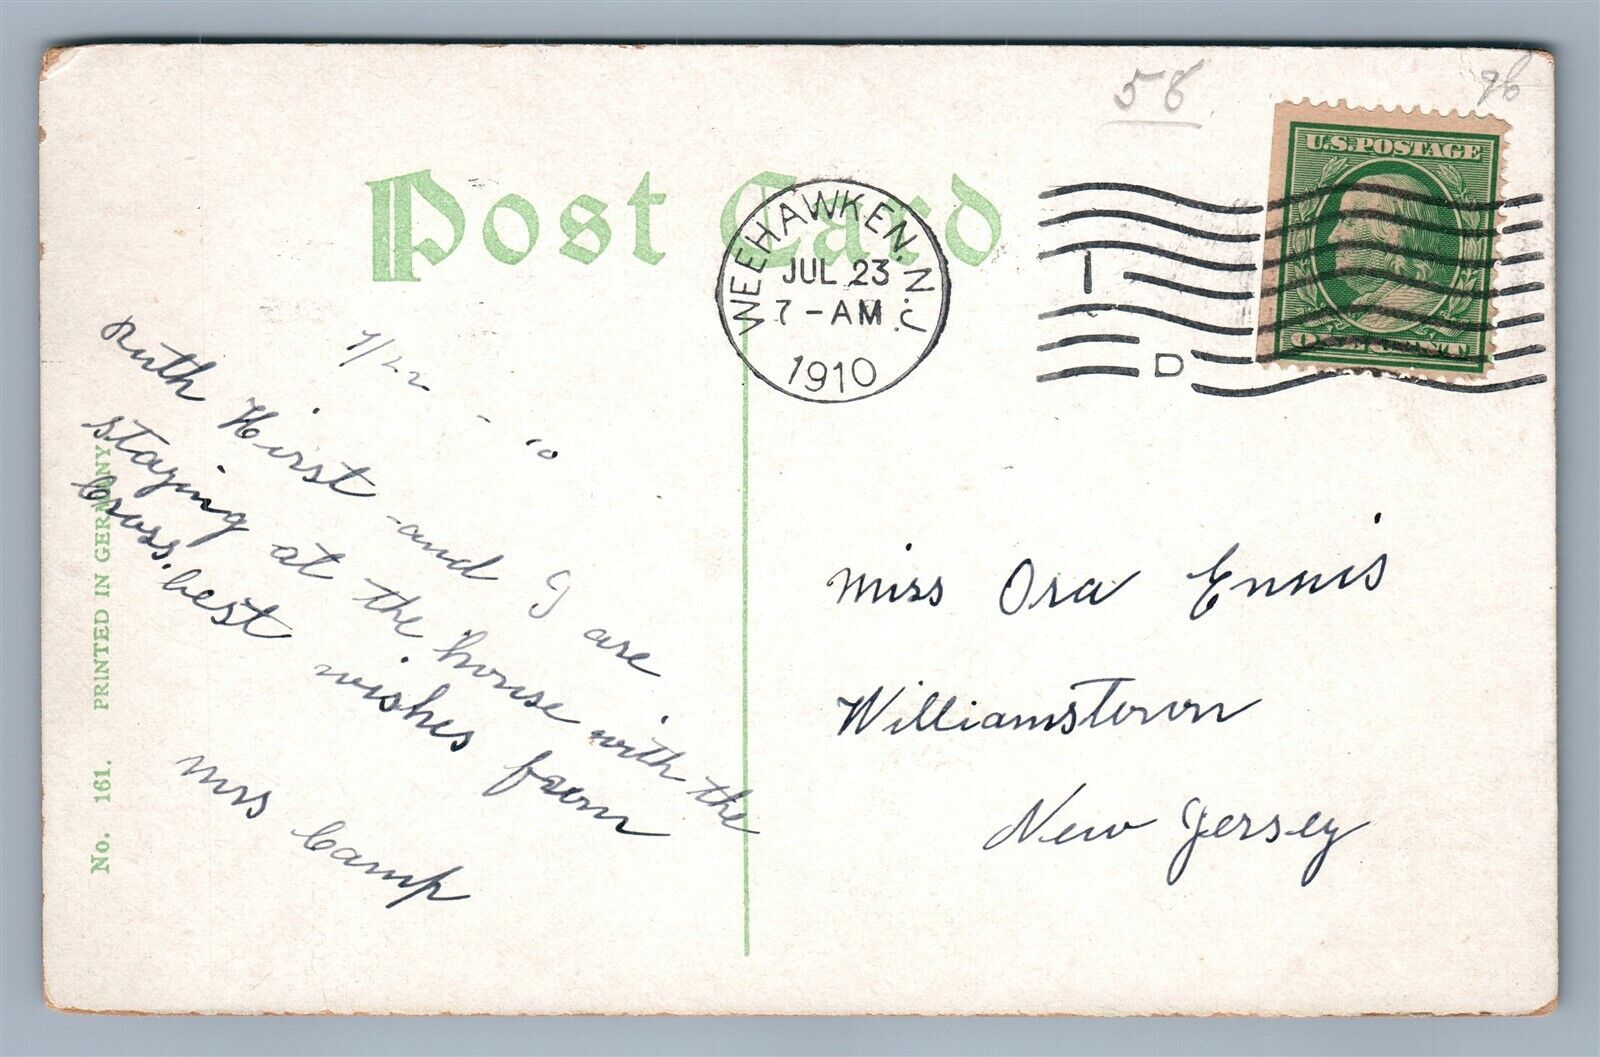 58
96
U.S. POSTAGE
ONE CENT
Post Card
WEEHAWKEN. N.J.
JUL 23
7 - AM
1910
1
D
7/22 - 10
Ruth Hirst and I are
staying at the house with the
Cross. best wishes from
Mrs Camp
Miss Ora Ennis
Williamstown
New Jersey
No. 161. PRINTED IN GERMANY